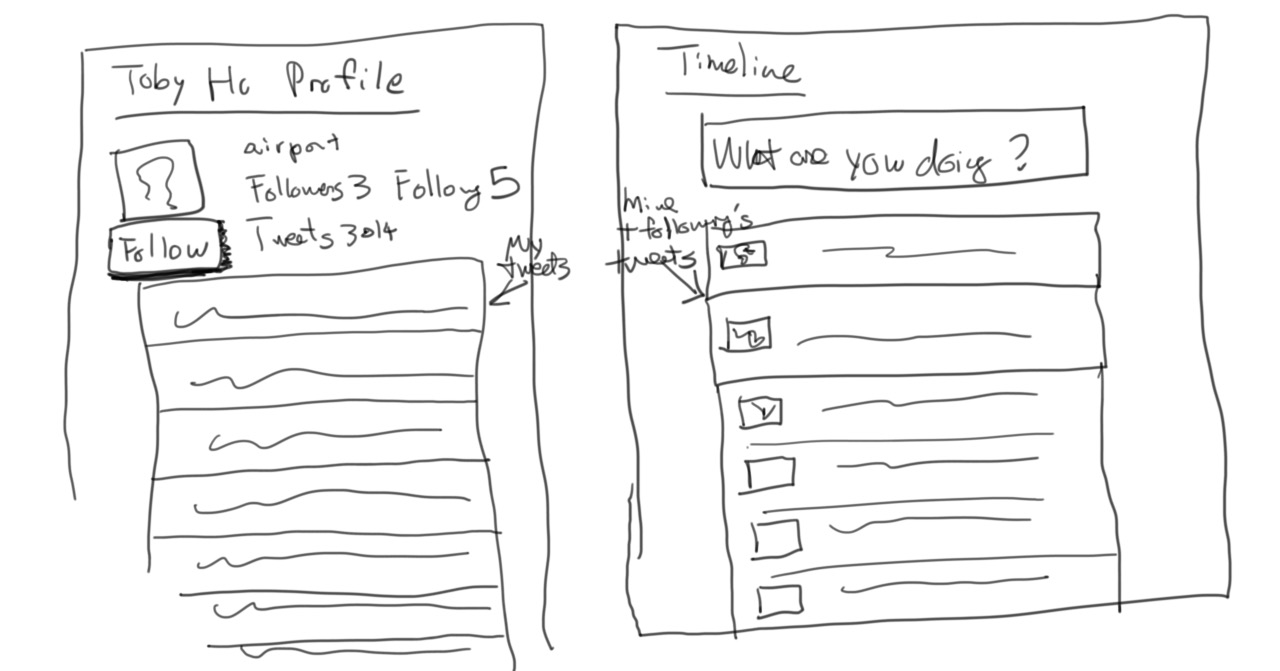 Toby Ho Profile
airport
Followers 3 Following 5
Tweets 3014
Follow
My
tweets
Timeline
What are you doing?
Mine
+ following's
tweets